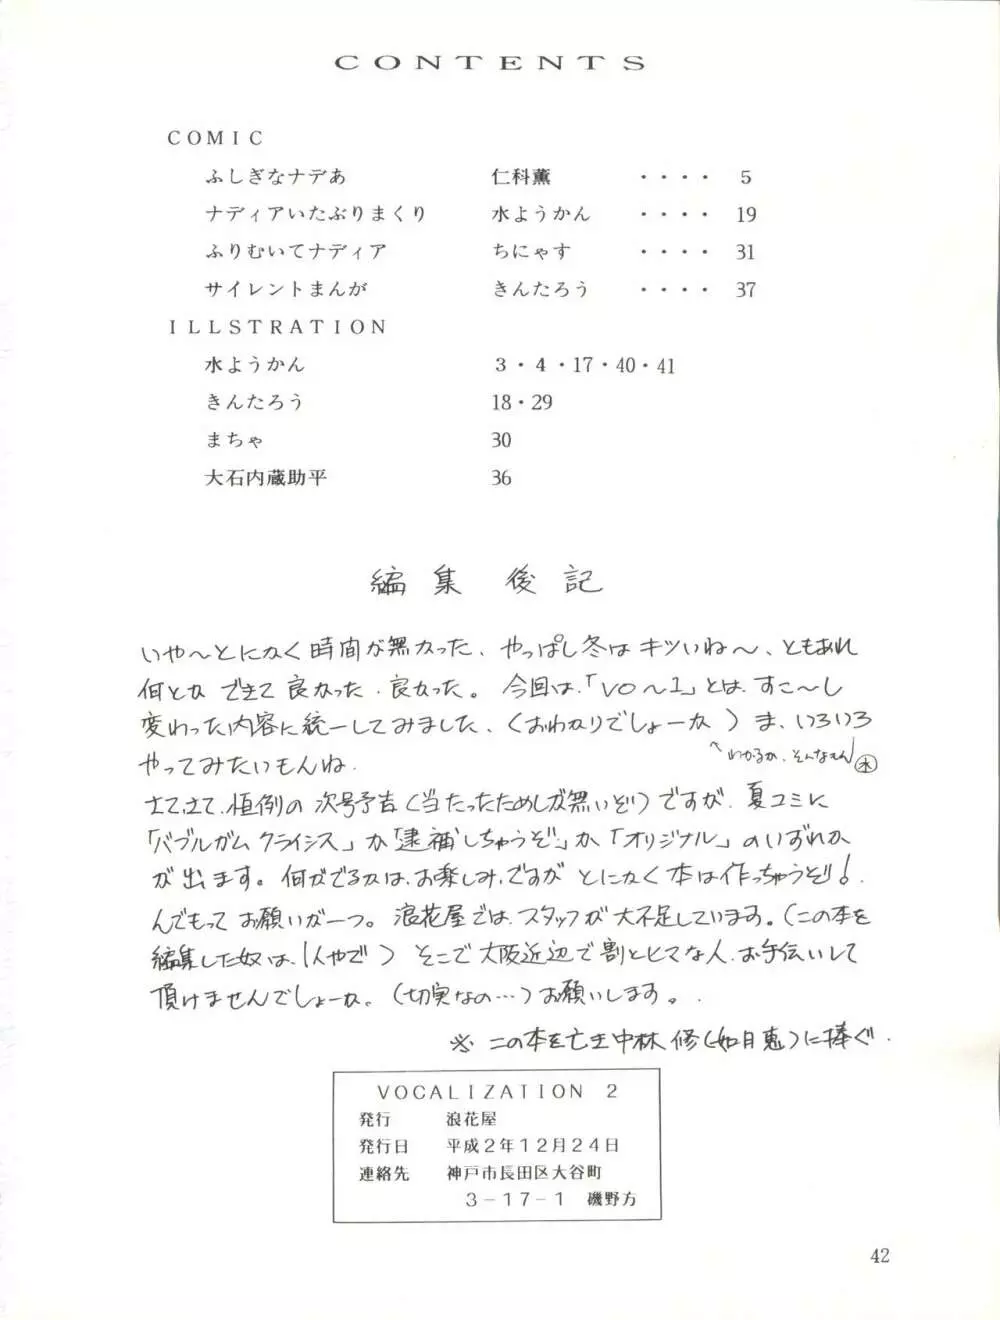 CONTENTS
COMIC
ふしぎなナデあ 仁科薫 ・・・・ 5
ナディアいたぶりまくり 水ようかん ・・・・ 19
ふりむいてナディア ちにゃす ・・・・ 31
サイレントまんが きんたろう ・・・・ 37
ILLSTRATION
水ようかん 3・4・17・40・41
きんたろう 18・29
まちゃ 30
大石内蔵助平 36
編集後記
いや〜とにかく時間が無かった、やっぱし冬はキツいね〜、ともあれ
何とか できて 良かった、良かった。今回は、「VO〜1」とは、すこ〜し
変わった内容に統一してみました、(おわかりでしょーか)ま、いろいろ
へわかるか、そんなもん 水
やってみたいもんね、
さて、さて、恒例の次号予告(当たったためしが無いぞ)ですが、夏コミに
「バブルガムクライシス」か「逮捕しちゃうぞ」か「オリジナル」のいずれか
が出ます。何がでるかは、お楽しみ、ですが とにかく本は作っちゃうぞ!
んでもって お願いが一つ。浪花屋では、スタッフが大不足しています。(この本を
編集した奴は、1人やで)そこで大阪近辺で割とヒマな人、お手伝いして
頂けませんでしょーか。(切実なの…)お願いします。
※この本を亡き中林 修(如月恵)に捧ぐ.
VOCALIZATION 2
発行 浪花屋
発行日 平成2年12月24日
連絡先 神戸市長田区大谷町
3−17−1 磯野方
42